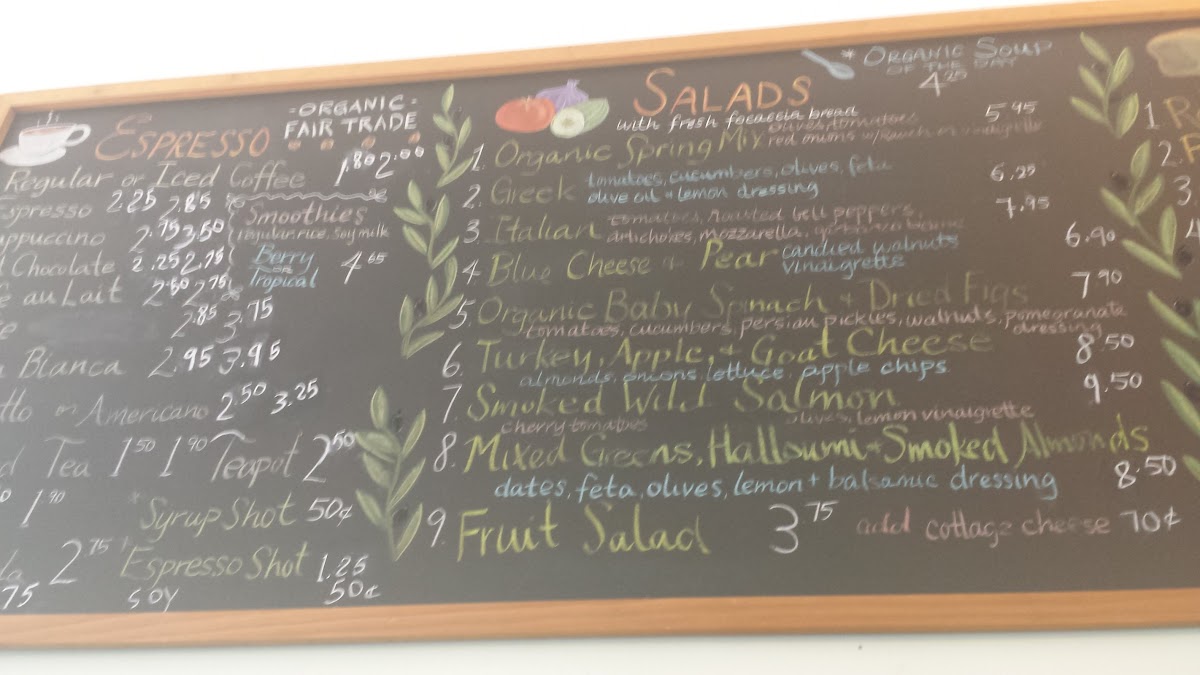 ESPRESSO
-ORGANIC-
FAIR TRADE
Regular or Iced Coffee 1.80 2.00
spresso 2.25 2.85
appuccino 2.75 3.50
Chocolate 2.25 2.75
au Lait 2.50 2.75
2.85 3.75
Bianca 2.95 3.95
tto or Americano 2.50 3.25
Tea 1.50 1.90 Teapot 2.50
1.90
Syrup Shot 50¢
2.75 + Espresso Shot 1.25
75 soy 50¢
Smoothies
regular, rice, soy milk
Berry
OR
Tropical
4.65
SALADS
with fresh focaccia bread
* ORGANIC SOUP
OF THE DAY
4.25
1. Organic Spring Mix olives, tomatoes
red onions 5.95
2. Greek tomatoes, cucumbers, olives, feta
olive oil + lemon dressing 6.25
3. Italian tomatoes, roasted bell peppers,
artichokes, mozzarella, 7.95
4 Blue Cheese + Pear candied walnuts
vinaigrette 6.90
5 Organic Baby Spinach + Dried Figs 7.90
tomatoes, cucumbers, persian pickles, walnuts, pomegranate
dressing
6. Turkey, Apple, + Goat Cheese 8.50
almonds, onions, lettuce, apple chips
7. Smoked Wild Salmon 9.50
cherry tomatoes olives, lemon vinaigrette
8. Mixed Greens, Halloumi + Smoked Almonds
dates, feta, olives, lemon + balsamic dressing 8.50
9. Fruit Salad 3.75 add cottage cheese 70¢
1
2.
3.
4